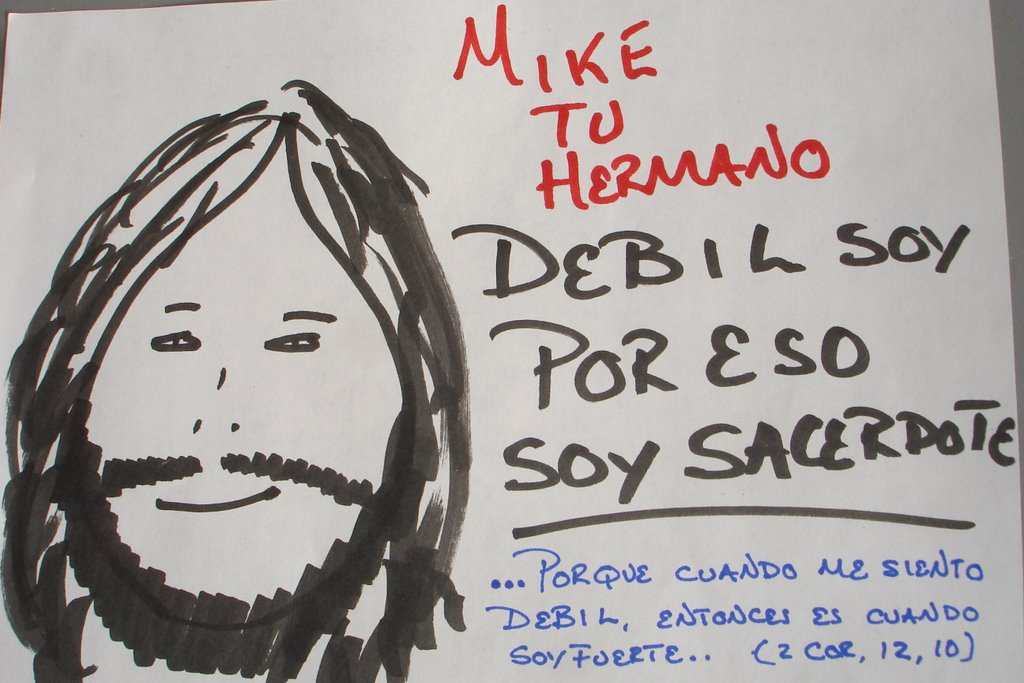 MIKE
TU
HERMANO
DEBIL SOY
POR ESO
SOY SACERDOTE
...PORQUE CUANDO ME SIENTO
DEBIL, ENTONCES ES CUANDO
SOY FUERTE.. (2 COR, 12, 10)